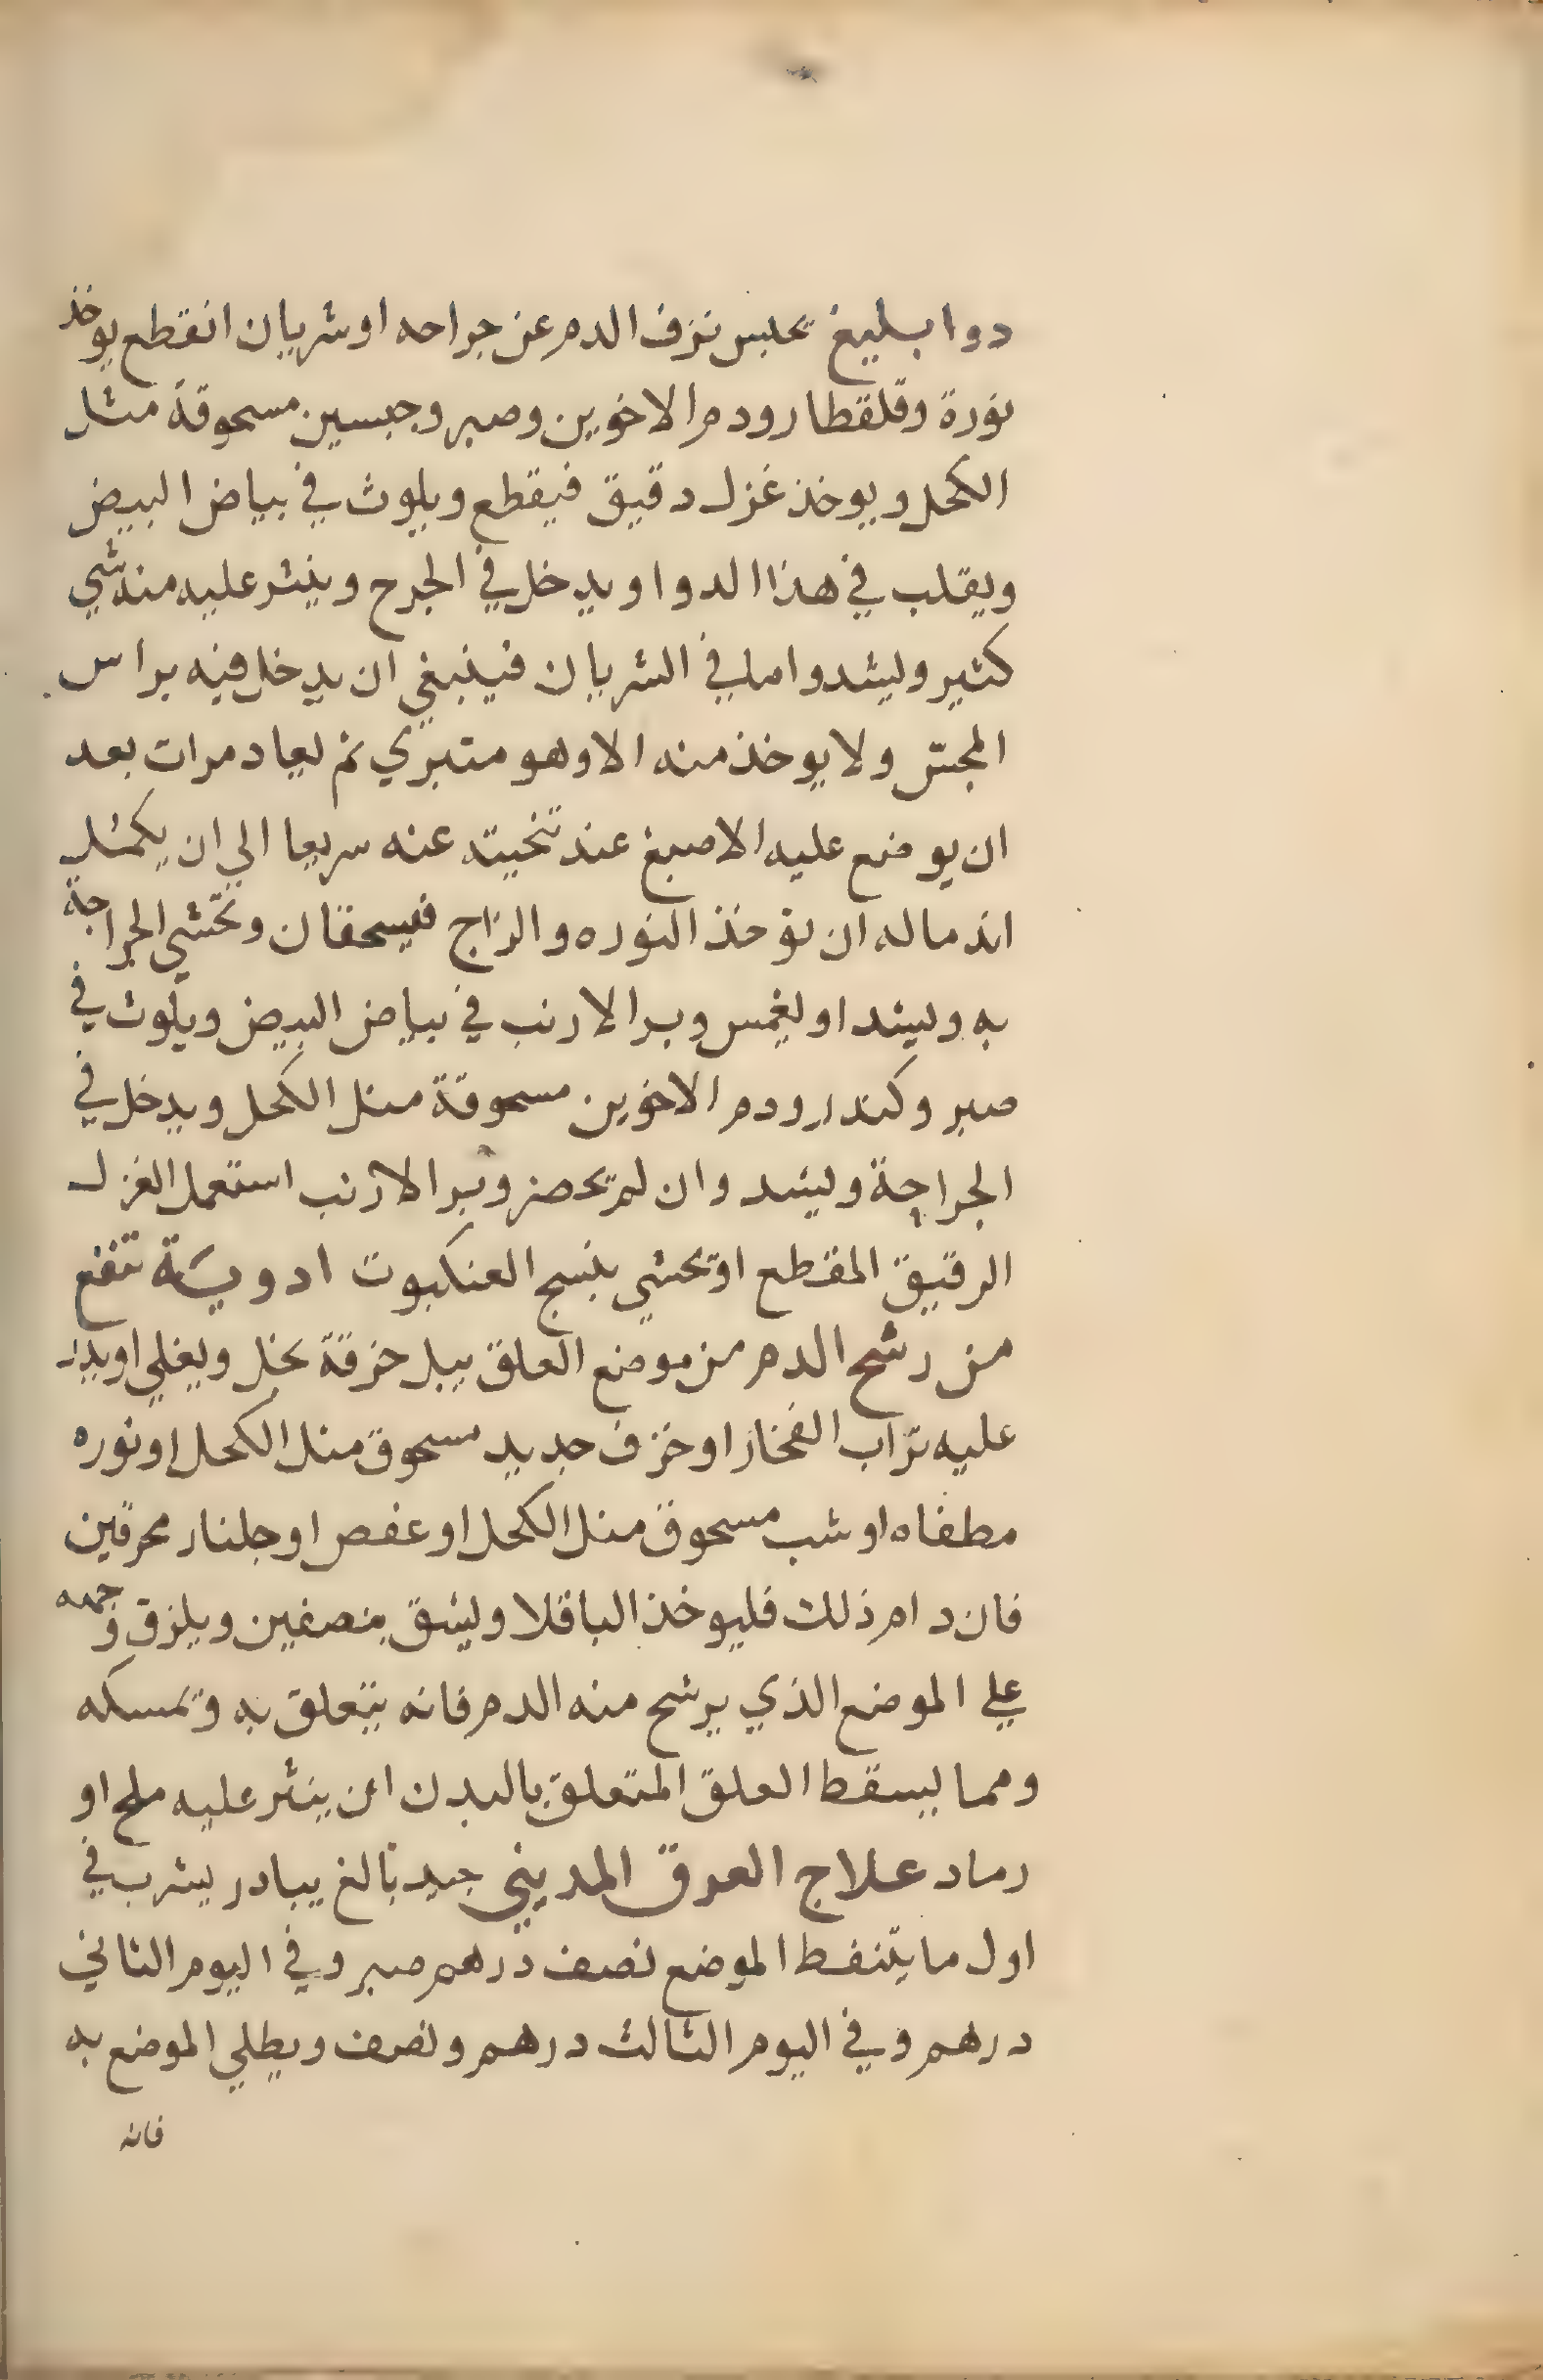 دوا بليغ يحبس نزف الدم عن جراحه او شريان انقطع يوخذ
نورة وقلقطار ودم الاخوين وصبر وجبسين مسحوقة مثل
الكحل ويوخذ غزل دقيق فيقطع ويلوث في بياض البيض
ويقلب في هذا الدوا ويدخل في الجرح وينثر عليه منه شي
كثير وليشد واما في الشريان فينبغي ان يدخل فيه براس
المجس ولا يوخذ منه الا وهو متبري ثم يعاد مرات بعد
ان يوضع عليه الاصبع عند تنحيته عنه سريعا الي ان يكمل
اندماله ان توخذ النوره والزاج فيسحقان وتحشي الجراحة
به وليشد او ليغمس وبر الارنب في بياض البيض ويلوث في
صبر وكندر ودم الاخوين مسحوقة مثل الكحل ويدخل في
الجراحة وليشد وان لم يحضر وبر الارنب استعمل الغزل
الرقيق المقطع او تحشي بنسج العنكبوت ادوية تنفع
من رشح الدم من موضع العلق يبل خرقة بخل ويغلي او يذر
عليه تراب الفخار او خزف جديد مسحوق مثل الكحل او نوره
مطفاه او شب مسحوق مثل الكحل او عفص او جلنار محرقين
فان دام ذلك فليوخذ الباقلا وليشق بنصفين ويلزق وجهه
علي الموضع الذي يرشح منه الدم فانه يتعلق به وتمسكه
ومما يسقط العلق المتعلق بالبدن ان ينثر عليه ملح او
رماد علاج العرق المديني جيد بالغ يبادر ليشرب في
اول ما يتنفط الموضع نصف درهم صبر وفي اليوم الثاني
درهم وفي اليوم الثالث درهم ونصف ويطلي الموضع به
فانه